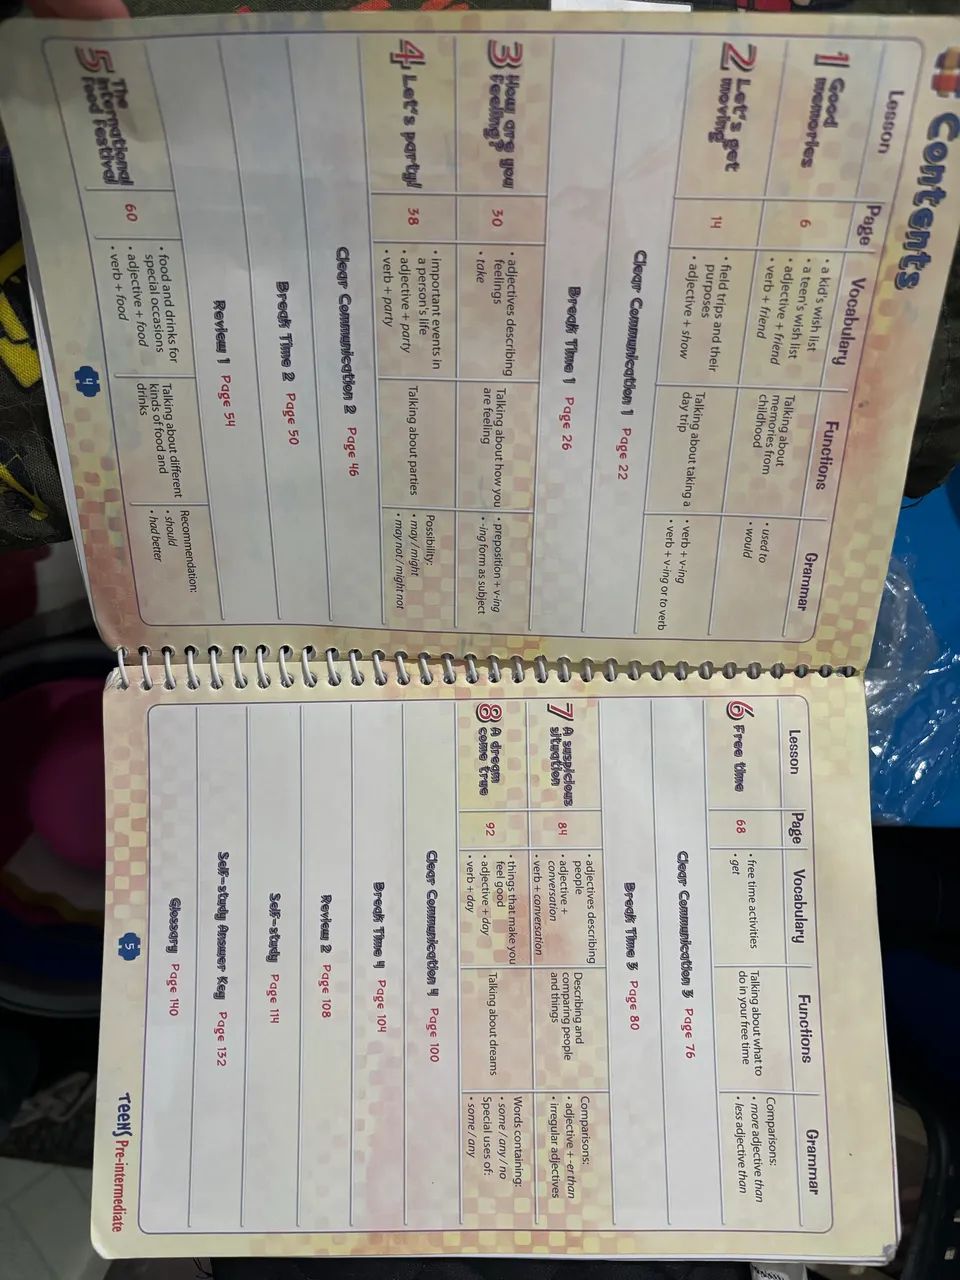 Contents
Lesson
Page
Vocabulary
Functions
Grammar
1 Good
memories
6
• a kid's wish list
• a teen's wish list
• adjective + friend
• verb + friend
Talking about
memories from
childhood
• used to
• would
2 Let's get
moving
14
• field trips and their
purposes
• adjective + show
Talking about taking a
day trip
• verb + v-ing
• verb + v-ing or to verb
Clear Communication 1 Page 22
Break Time 1 Page 26
3 How are you
feeling?
30
• adjectives describing
feelings
• take
Talking about how you
are feeling
• preposition + v-ing
• -ing form as subject
4 Let's party!
38
• important events in
a person's life
• adjective + party
• verb + party
Talking about parties
Possibility:
• may / might
• may not / might not
Clear Communication 2 Page 46
Break Time 2 Page 50
Review 1 Page 54
5 The
International
Food Festival
60
• food and drinks for
special occasions
• adjective + food
• verb + food
Talking about different
kinds of food and
drinks
Recommendation:
• should
• had better
4
Lesson
Page
Vocabulary
Functions
Grammar
6 Free time
68
• free time activities
• get
Talking about what to
do in your free time
Comparisons:
• more adjective than
• less adjective than
Clear Communication 3 Page 76
Break Time 3 Page 80
7 A suspicious
situation
84
• adjectives describing
people
• adjective +
conversation
• verb + conversation
Describing and
comparing people
and things
Comparisons:
• adjective + -er than
• irregular adjectives
8 A dream
come true
92
• things that make you
feel good
• adjective + day
• verb + day
Talking about dreams
Words containing:
• some / any / no
Special uses of:
• some / any
Clear Communication 4 Page 100
Break Time 4 Page 104
Review 2 Page 108
Self-study Page 114
Self-study Answer Key Page 132
Glossary Page 140
5
TEENS Pre-intermediate